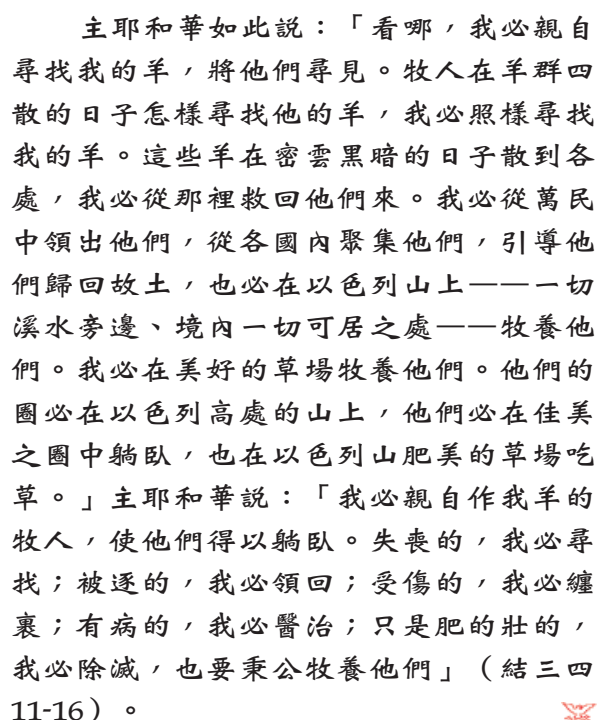 主耶和華如此説：「看哪，我必親自
尋找我的羊，將他們尋見。牧人在羊群四
散的日子怎樣尋找他的羊，我必照樣尋找
我的羊。這些羊在密雲黑暗的日子散到各
處，我必從那裡救回他們來。我必從萬民
中領出他們，從各國內聚集他們，引導他
們歸回故土，也必在以色列山上——一切
溪水旁邊、境內一切可居之處——牧養他
們。我必在美好的草場牧養他們。他們的
圈必在以色列高處的山上，他們必在佳美
之圈中躺臥，也在以色列山肥美的草場吃
草。」主耶和華説：「我必親自作我羊的
牧人，使他們得以躺臥。失喪的，我必尋
找；被逐的，我必領回；受傷的，我必纏
裹；有病的，我必醫治；只是肥的壯的，
我必除滅，也要秉公牧養他們」（結三四
11-16）。